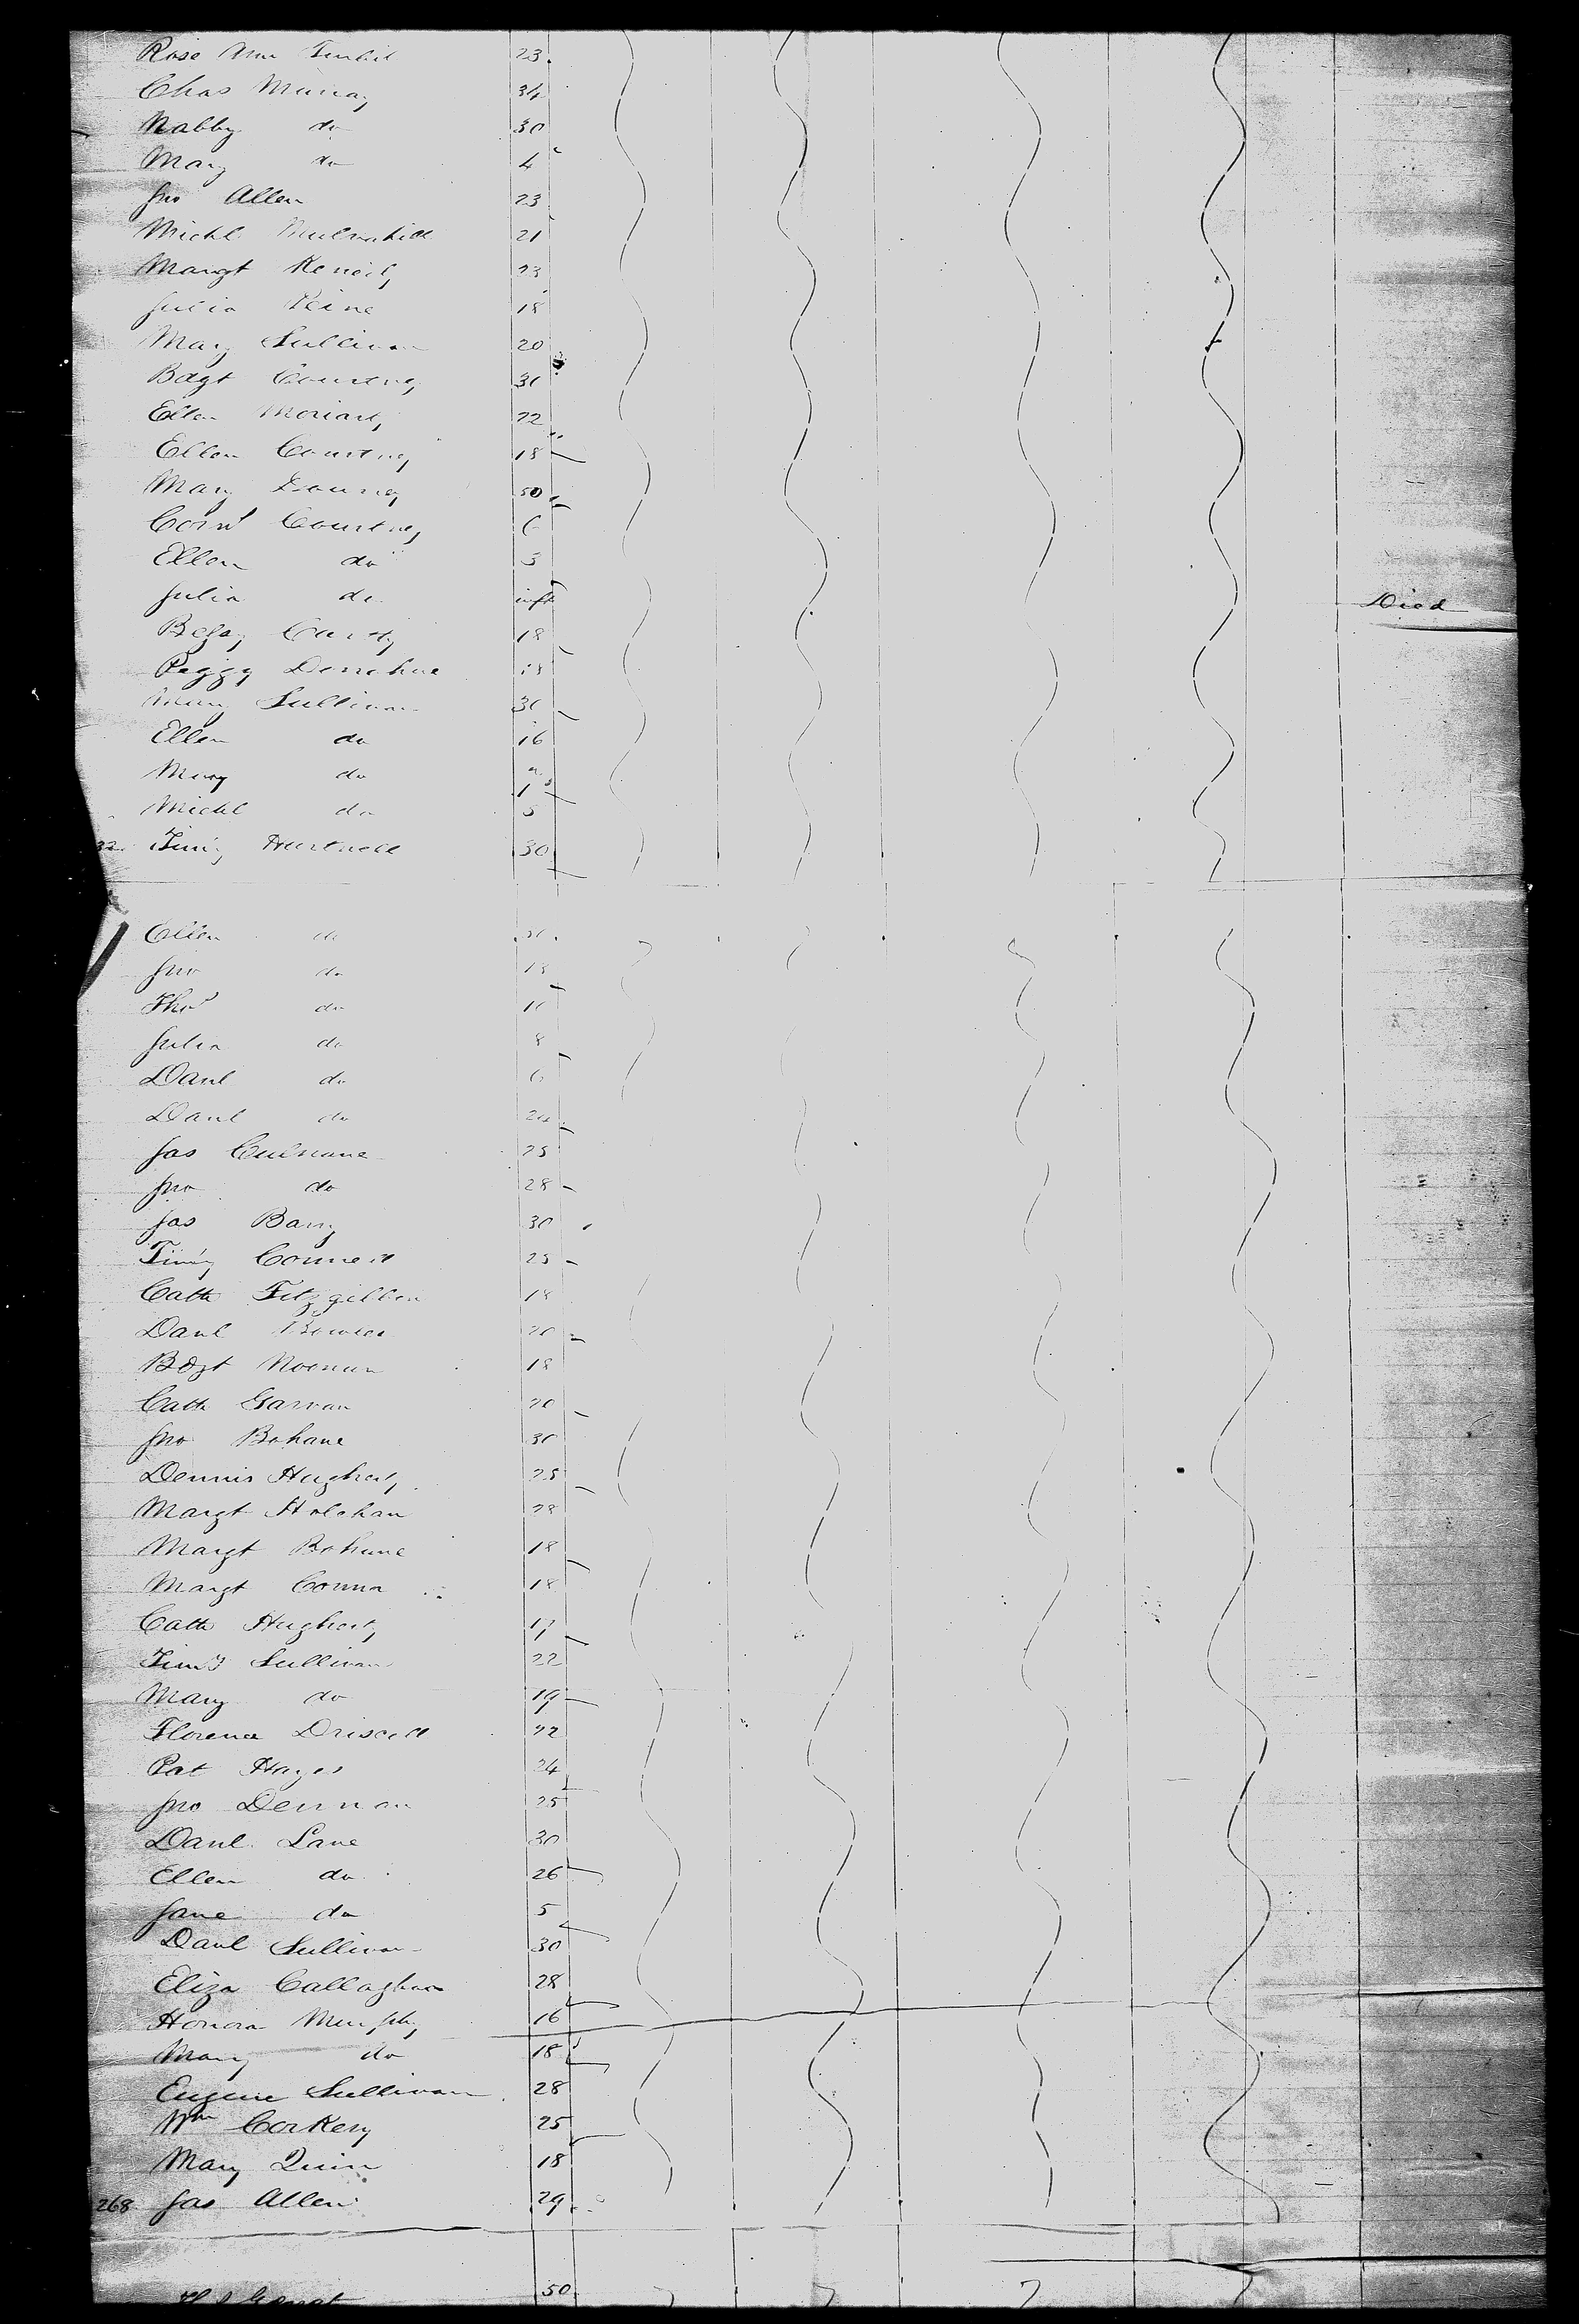 Rose Ann 23
Chas Murray 34
Nabby do 30
Mary do 4
Jno Allen 23
Michl 21
Margt 23
Julia 18
Mary Sullivan 20
Bdgt Courtney 30
Ellen Moriarty 22
Ellen Courtney 18
Mary Downey 50
Corns Courtney 6
Ellen do 3
Julia do inft Died
18
Peggy Donohue 18
Mary Sullivan 30
Ellen do 16
Mary do
Michl do 5
Timy Hartnell 30
Ellen do 30
Jno do 18
Thos do 10
Julia do 8
Danl do 6
Danl do 24
Jas Culnane 25
Jno do 28
Jas Barry 30
Timy Connell 25
Cath Fitzgibbon 18
Danl 20
Bdgt Noonan 18
Cath Garvan 20
Jno Bohane 30
Dennis Hagherty 25
Margt Holohan 28
Margt Bohane 18
Margt Connor 18
Cath Hagherty 17
Timy Sullivan 22
Mary do 19
Florence Driscoll 22
Pat Hayes 24
Jno 25
Danl Lane 30
Ellen do 26
Jane do 5
Danl Sullivan 30
Eliza Callaghan 28
Honora Murphy 16
Mary do 18
Eugene Sullivan 28
Wm Corkery 25
Mary Quin 18
268 Jas Allen 29
50